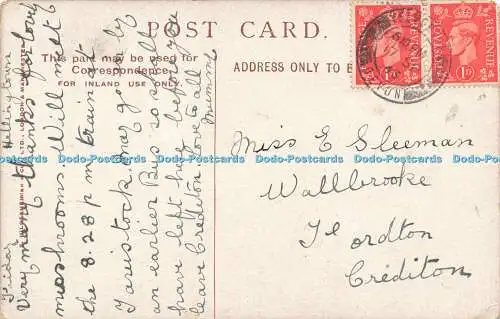 POST CARD.
This part may be used for
Correspondence.
FOR INLAND USE ONLY.
ADDRESS ONLY TO
Friday
Very many thanks for lovely
mushrooms. Will meet
the 8.28 pm train
Tavistock, may go by
an earlier Bus so shall
have left here before you
leave Crediton love to all
Mummy
Miss E Sleeman
Wallbrooke
Fordton
Crediton
POSTAGE REVENUE
1D
POSTAGE REVENUE
1D
Dodo-Postcards Dodo-Postcards Dodo-Postcards Dodo-Postcards Dodo-Postcards